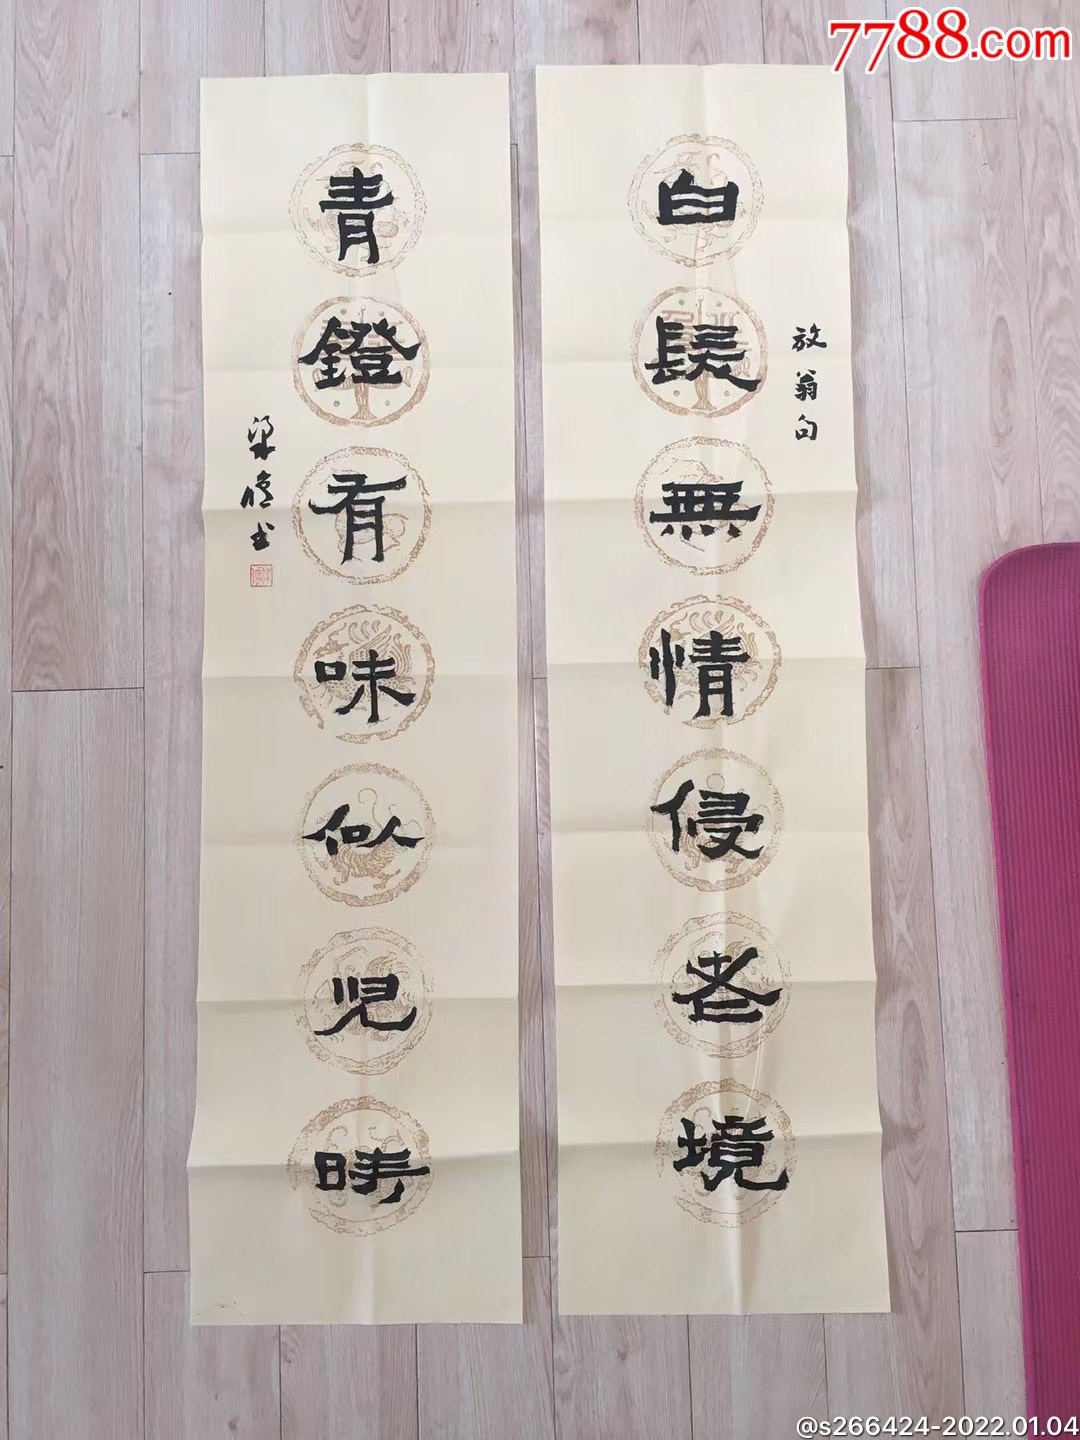 7788.com
放翁句
白髮無情侵老境
青鐙有味似兒時
梁
書
@s266424-2022.01.04